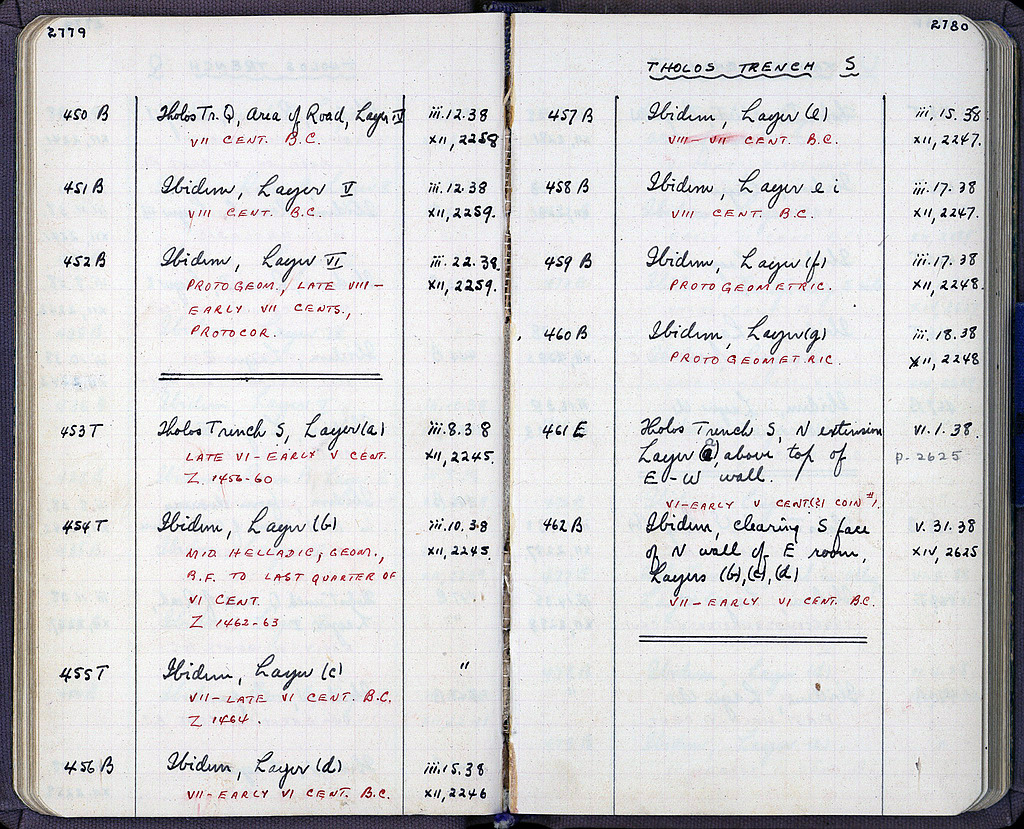 2779
450 B Tholos Tr. Q, Area of Road, Layer IV iii.12.38
VII CENT. B.C. XII, 2258
451 B Ibidem, Layer V iii.12.38
VIII CENT. B.C. XII, 2259.
452 B Ibidem, Layer VI iii.22.38
PROTOGEOM., LATE VIII- XII, 2259.
EARLY VII CENTS.,
PROTOCOR.
453 T Tholos Trench S, Layer (a) iii.8.38
LATE VI-EARLY V CENT. XII, 2245.
Z 1456-60
454 T Ibidem, Layer (b) iii.10.38
MID HELLADIC, GEOM., XII, 2245
B.F. TO LAST QUARTER OF
VI CENT.
Z 1462-63
455 T Ibidem, Layer (c) "
VII-LATE VI CENT. B.C.
Z 1464.
456 B Ibidem, Layer (d) iii.15.38
VII-EARLY VI CENT. B.C. XII, 2246
2780
THOLOS TRENCH S
457 B Ibidem, Layer (e) iii.15.38
VIII-VII CENT. B.C. XII, 2247.
458 B Ibidem, Layer e i iii.17.38
VIII CENT. B.C. XII, 2247.
459 B Ibidem, Layer (f) iii.17.38
PROTOGEOMETRIC. XII, 2248.
460 B Ibidem, Layer (g) iii.18.38
PROTOGEOMETRIC. XII, 2248
461 E Tholos Trench S, N extension VI.1.38.
Layer (a), above top of p. 2625
E-W wall.
VI-EARLY V CENT.(?) COIN #1.
462 B Ibidem, clearing S face V.31.38
of N wall of E room, XIV, 2625
Layers (b), (c), (d)
VII-EARLY VI CENT. B.C.